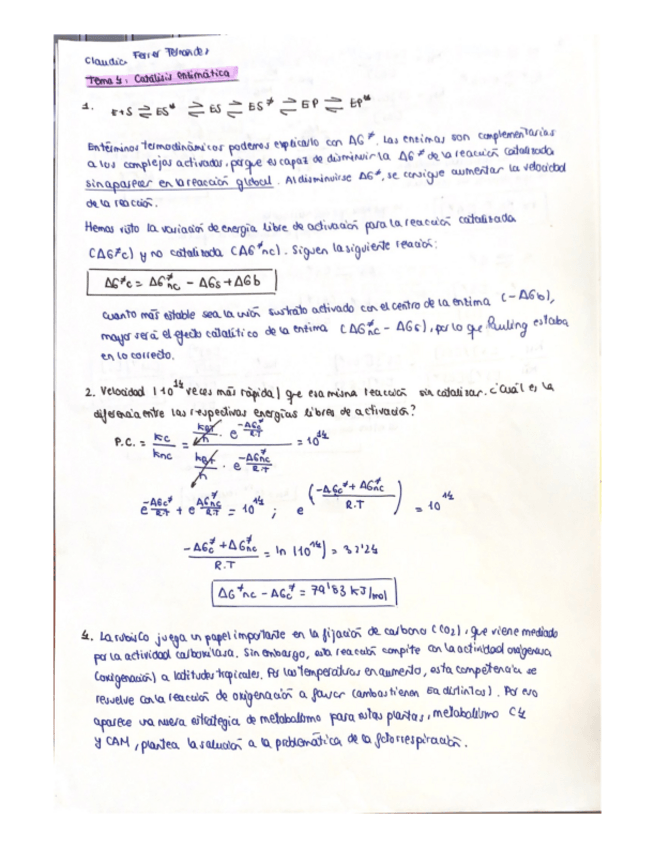 Claudia Ferrer Fernández
Tema 4: Catálisis enzimática
1. E+S ⇌ ES* ⇌ ES ⇌ ES≠ ⇌ EP ⇌ EP*
En términos termodinámicos podemos explicarlo con ΔG≠. Las enzimas son complementarias
a los complejos activados, porque es capaz de disminuir la ΔG≠ de la reacción catalizada
sin aparecer en la reacción global. Al disminuirse ΔG≠, se consigue aumentar la velocidad
de la reacción.
Hemos visto la variación de energía libre de activación para la reacción catalizada
(ΔG≠c) y no catalizada (ΔG≠nc). Siguen la siguiente reación:
ΔG≠c = ΔG≠nc - ΔGs + ΔGb
Cuanto más estable sea la unión sustrato activado con el centro de la enzima (-ΔGb),
mayor será el efecto catalítico de la enzima (ΔG≠nc - ΔGs), por lo que Pauling estaba
en lo correcto.
2. Velocidad (10^14 veces más rápida) que esa misma reacción sin catalizar. ¿Cuál es la
diferencia entre las respectivas energías libres de activación?
P.C. = kc/knc = (kBT/h · e^(-ΔGc≠/R.T)) / (kBT/h · e^(-ΔGnc≠/R.T)) = 10^14
e^(-ΔGc≠/R.T) + e^(ΔGnc≠/R.T) = 10^14 ; e^((-ΔGc≠ + ΔG≠nc)/R.T) = 10^14
(-ΔGc≠ + ΔG≠nc)/R.T = ln (10^14) = 32'24
ΔG≠nc - ΔGc≠ = 79'83 kJ/mol
4. La rubisco juega un papel importante en la fijación de carbono (CO2), que viene mediado
por la actividad carboxilasa. Sin embargo, esta reacción compite con la actividad oxigenasa
(oxigenación) a latitudes tropicales. Por las temperaturas en aumento, esta competencia se
resuelve con la reacción de oxigenación a favor (ambas tienen Ea distintas). Por eso
aparece una nueva estrategia de metabolismo para estas plantas, metabolismo C4
y CAM, plantea la solución a la problemática de la fotorrespiración.